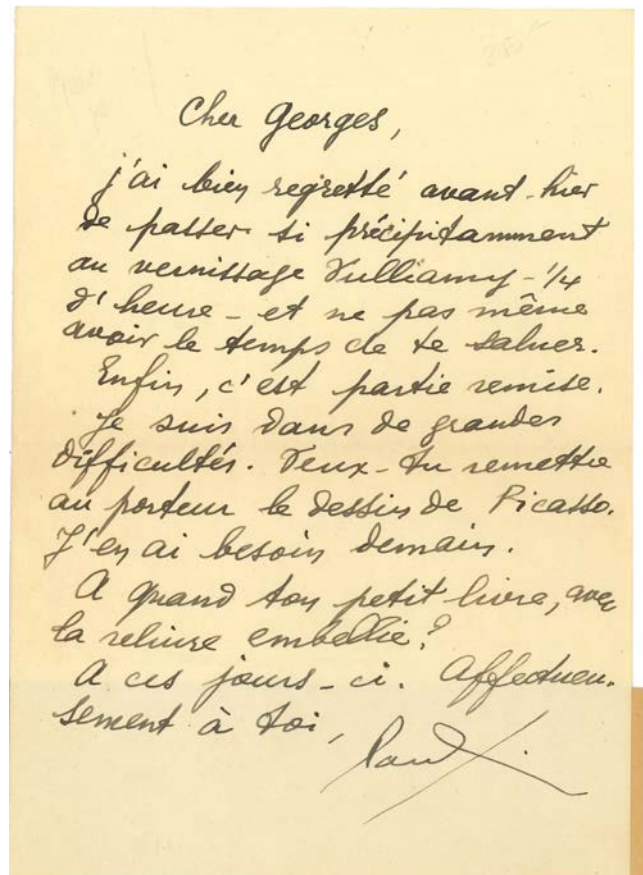 Cher Georges,
j'ai bien regretté avant-hier
de passer si précipitamment
au vernissage Vulliamy - 1/4
d'heure - et ne pas même
avoir le temps de te saluer.
Enfin, c'est partie remise.
Je suis dans de grandes
difficultés. Veux-tu remettre
au porteur le dessin de Picasso.
J'en ai besoin demain.
A quand ton petit livre, avec
la reliure embellie?
A ces jours-ci. Affectueu-
sement à toi,
Paul